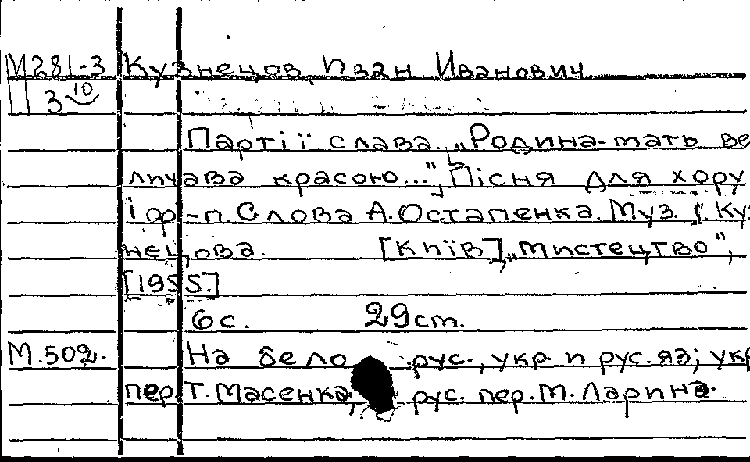 М281-3 Кузнецов, Иван Иванович
П 3 10
Партії слава. „Родина-мать ве
личава красою...", Пісня для хору
і фр-п. Слова А. Остапенка. Муз. І. Куз
нецова. [Київ], „Мистецтво",
[1955.]
6 с. 29 cm.
М.502. На бело рус., укр. и рус. яз; укр
пер. Т. Масенка, рус. пер. М. Ларина.